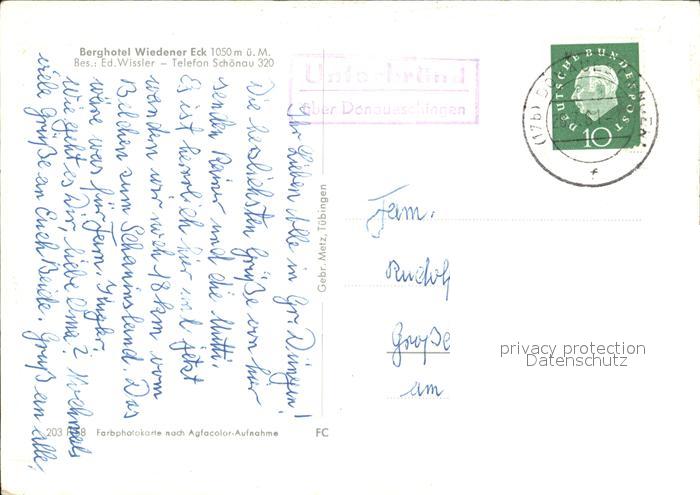 Berghotel Wiedener Eck 1050 m ü. M.
Bes.: Ed. Wissler – Telefon Schönau 320
Unterbränd
über Donaueschingen
DEUTSCHE BUNDESPOST
10
(17b) DO
NGEN
Ihr Lieben Alle in Gr. Düngen!
Die herzlichsten Grüße von hier
senden Rainer und die Mutti.
Es ist herrlich hier und jetzt
wandern wir noch 18 km vom
Belchen zum Schauinsland. Das
wäre was für Fam. Ziegler.
Wie geht es Dir, liebe Oma? Nochmals
viele Grüße an Euch Beide. Gruß an alle,
Gebr. Metz, Tübingen
Fam.
Rudolf
Große
am
privacy protection
Datenschutz
203 Farbphotokarte nach Agfacolor-Aufnahme
FC